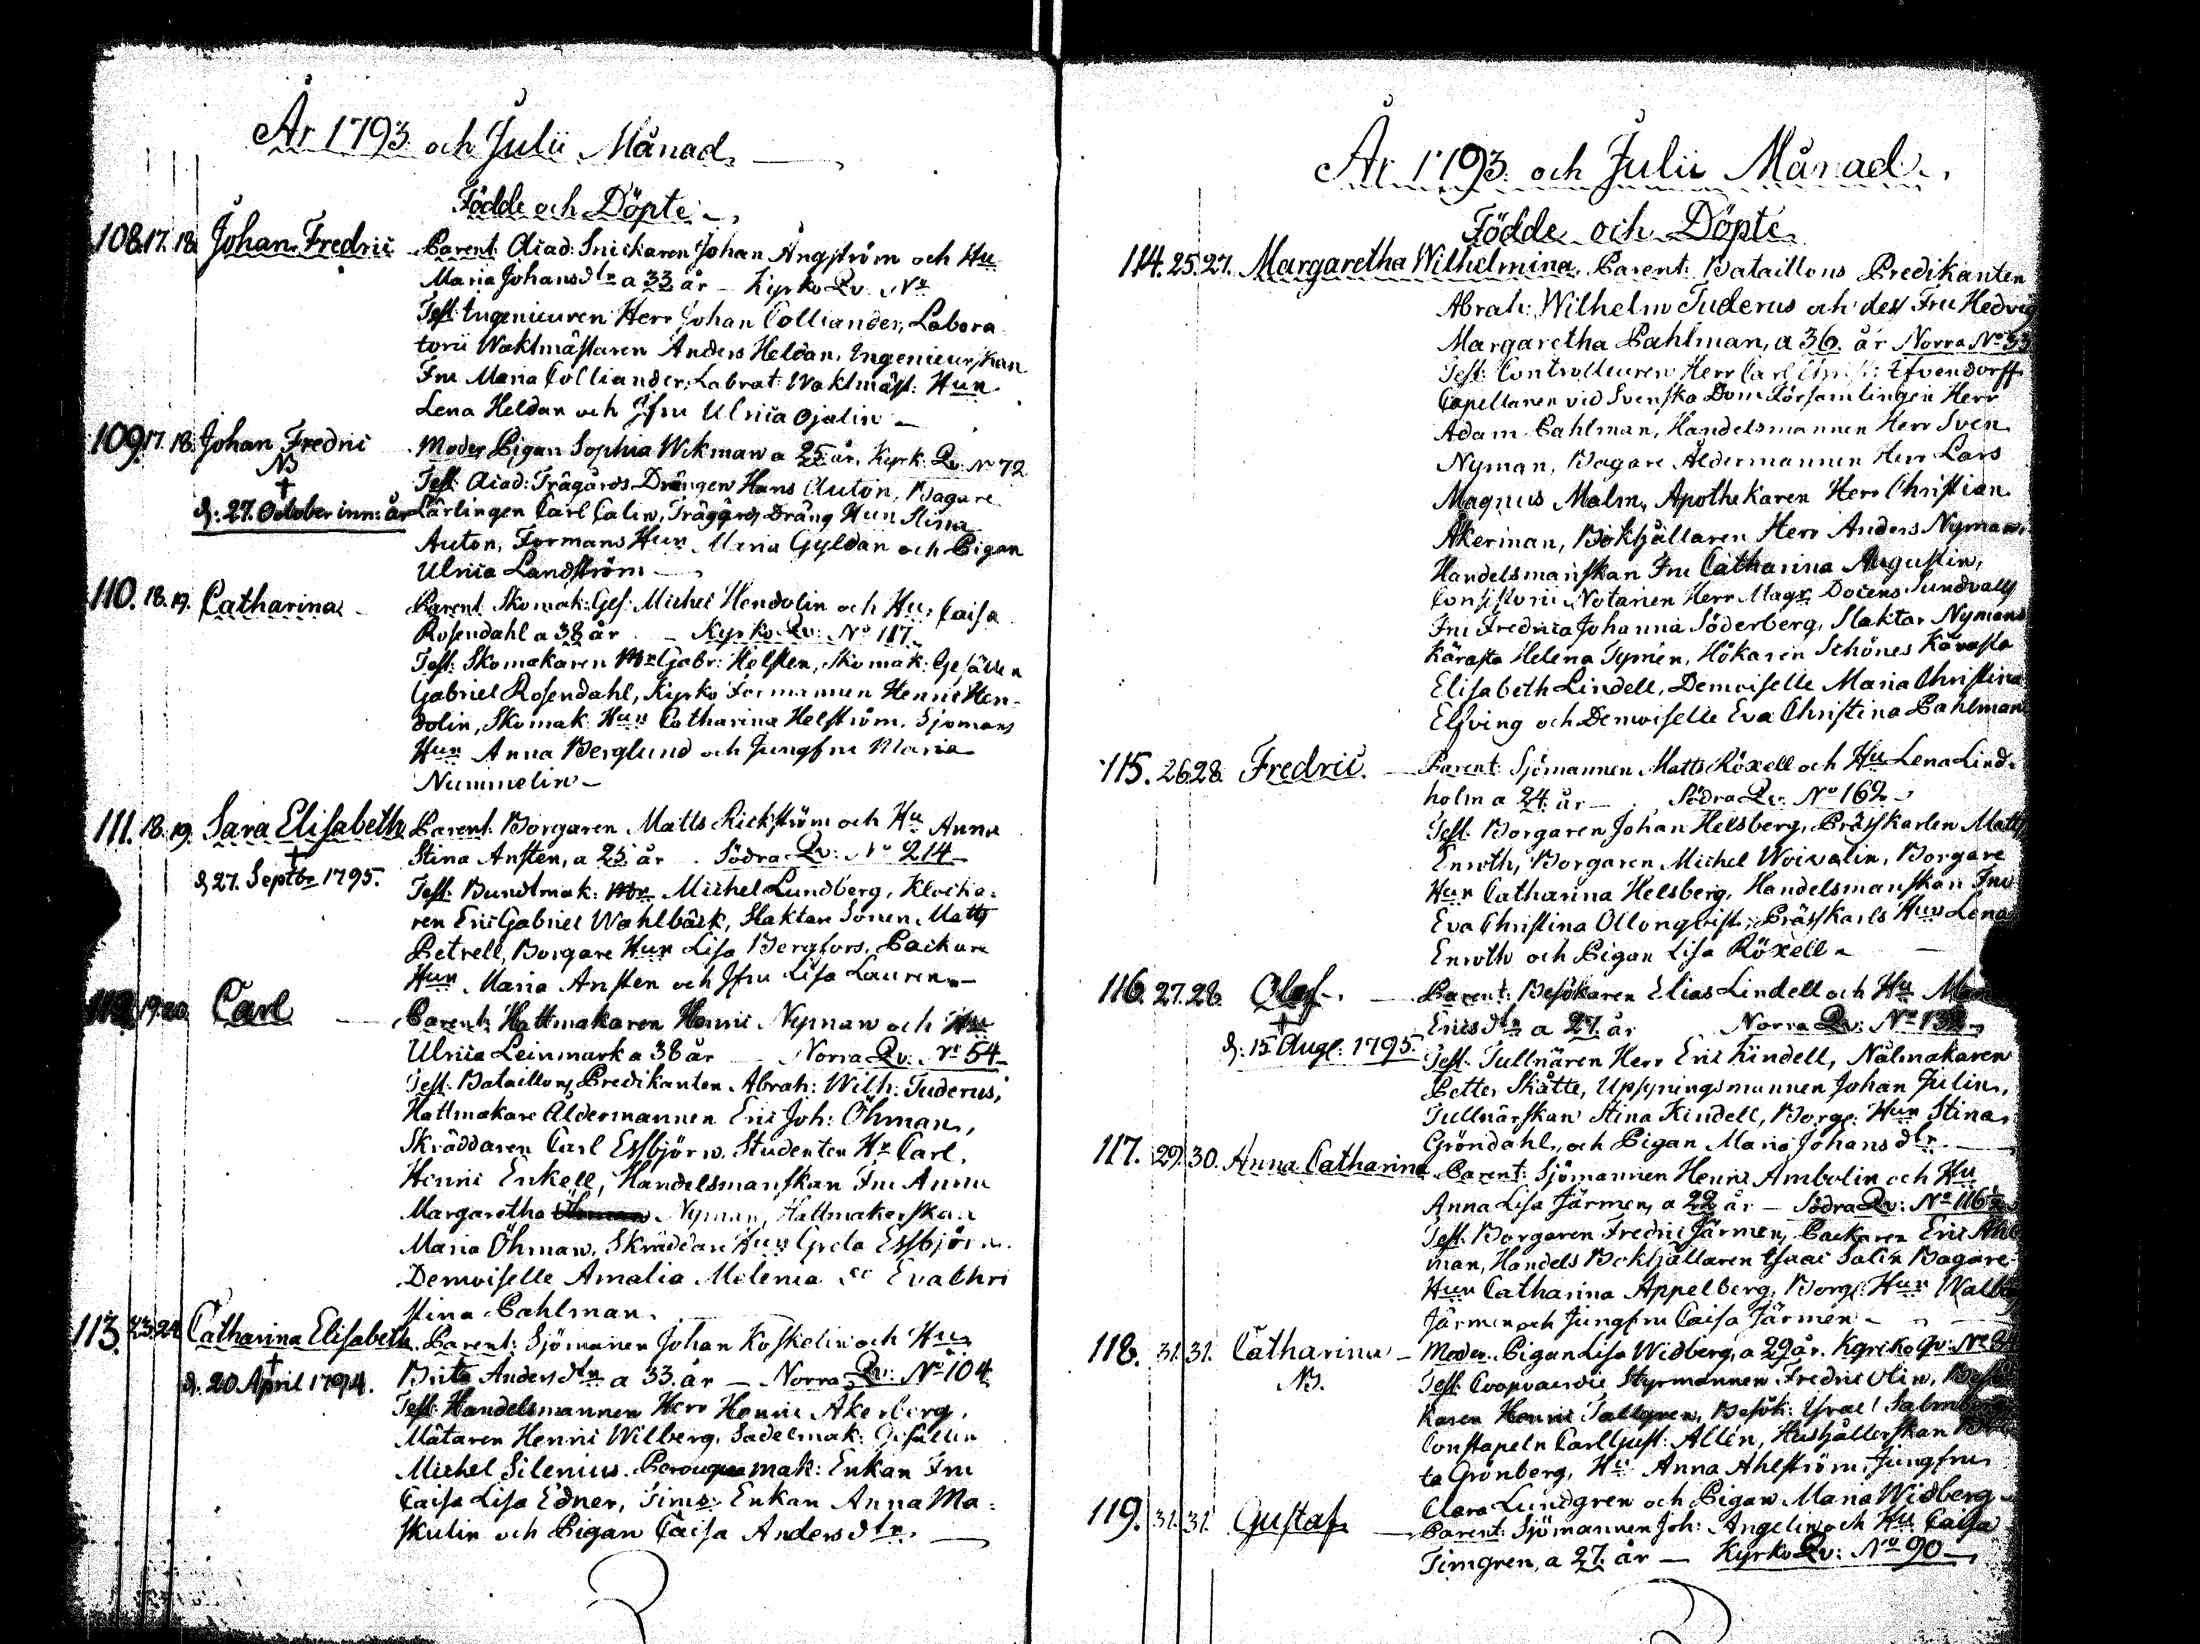 År 1793. och Julii Månad.
Födde och Döpte
108. 17. 18. Johan Fredric Parent: Acad: Snickaren Johan Ångström och Hu
Maria Johansdtr a 33 år – Kyrko Qv: No
Test: Ingenieuren Herr Johan Colliander, Labora
torii Waktmästaren Anders Heldan, Ingenieurskan
Fru Maria Colliander, Labrat: Waktmäst: Hun
Lena Heldan och Jfru Ulrica Ojalin
109. 17. 18. Johan Fredric Moder Pigan Sophia Wikman a 25 år, Kyrk: Qv: No 72
NB
Test: Acad: Trägårds Drängen Hans Auton, Bagare
† d: 27. October inn: år Lärlingen Carl Calin, Trägårds Dräng Hun Stina
Auton, Formans Hun Maria Gyldan och Pigan
Ulrica Landström
110. 18. 19. Catharina Parent: Skomak: Ges: Michel Hendolin och Hu Caisa
Rosendahl a 38 år – Kyrko Qv: No 117.
Test: Skomakaren Mr Gabr: Holsten, Skomak: Gesällen
Gabriel Rosendahl, Kyrko Formannen Henric Hen-
dolin, Skomak: Hun Catharina Helström, Sjömans
Hun Anna Berglund och Jungfru Maria
Nummelin
111. 18. 19. Sara Elisabeth Parent: Borgaren Matts Rickström och Hu Anna
Stina Ansten, a 25 år. Södra Qv: No 214
† d. 27. Septbr 1795. Test: Buntmak: Mr Michel Lundberg, Klocka-
ren Eric Gabriel Wahlbäck, Slaktare Sonen Matts
Petrell, Borgare Hun Lisa Bergfors, Packare
Hun Maria Ansten och Jfru Lisa Lauren
112. 19. 20. Carl Parent: Hattmakaren Henric Nyman och Hu
Ulrica Leinmark a 38 år – Norra Qv: No 54
Test: Bataillons Predikanten Abrah: Wilh: Tuderus,
Hattmakare Åldermannen Eric Joh: Öhman,
Skräddaren Carl Essbjörn, Studenten Hr Carl
Henric Enkell, Handelsmanskan Fru Anna
Margaretha Nyman, Hattmakerskan
Maria Öhman, Skräddare Hun Greta Essbjörn
Demoiselle Amalia Melenia oc Eva Chri
stina Pahlman.
113. 23. 24. Catharina Elisabeth Parent: Sjömannen Johan Koskelin och Hu
Brita Andersdtr a 33 år – Norra Qv: No 104
† d. 20 April 1794. Test: Handelsmannen Herr Henric Åkerberg,
Mätaren Henric Wilberg, Sadelmak: Gesällen
Michel Silenius, Perouquemak: Enkan Fru
Caisa Lisa Edner, Tims: Enkan Anna Ma-
skulin och Pigan Caisa Andersdtr.
År 1793. och Julii Månad.
Födde och Döpte
114. 25. 27. Margaretha Wilhelmina, Parent: Bataillons Predikanten
Abrah: Wilhelm Tuderus och dess Fru Hedvig
Margaretha Pahlman, a 36. år Norra No 33
Test: Controlleuren Herr Carl Efvendorff
Capellanen vid Svenska Dom Församlingen Herr
Adam Pahlman, Handelsmannen Herr Sven
Nyman, Bagare Åldermannen Herr Lars
Magnus Malm, Apothekaren Herr Christian
Åkerman, Bokhållaren Herr Anders Nyman,
Handelsmanskan Fru Catharina Augustin,
Consistorii Notarien Herr Magr Docens Sundvalls
Fru Fredrica Johanna Söderberg, Slaktar Nymans
Kärasta Helena Tymén, Hökaren Schönes Kärasta
Elisabeth Lindell, Demoiselle Maria Christina
Elfving och Demoiselle Eva Christina Pahlman
115. 26. 28. Fredric. Parent: Sjömannen Matts Röxell och Hu Lena Lind-
holm a 24 år – Södra Qv: No 162
Test: Borgaren Johan Helsberg, Prässkarlen Matts
Enroth, Borgaren Michel Woivalin, Borgare
Hun Catharina Helsberg, Handelsmanskan Fru
Eva Christina Ollonqvist, Prässkarls Hun Lena
Enroth och Pigan Lisa Röxell
116. 27. 28. Olof Parent: Besökaren Elias Lindell och Hu
Ericsdtr a 27. år Norra Qv: No
† d: 15 Aug: 1795. Test: Tullnären Herr Eric Kindell, Nålmakaren
Petter Skätte, Upsyningsmannen Johan Julin,
Tullnärskan Stina Kindell, Borg: Hun Stina
Gröndahl, och Pigan Maria Johansdtr
117. 29. 30. Anna Catharina Parent: Sjömannen Henric Ambolin och Hu
Anna Lisa Järmen, a 22 år – Södra Qv: No 116
Test: Borgaren Fredric Järmen, Packaren Eric Åhl
man, Handels Bokhållaren Isaac Salin Bagare
Hun Catharina Appelberg, Borg: Hun
Järmen och Jungfru Caisa Järmen
118. 31. 31. Catharina – Moder Pigan Lisa Widberg, a 29 år. Kyrko Qv: No
NB. Test: Coopvaerdie Styrmannen Fredric Olin,
karen Henric Tallgren, Besök: Israel Salmberg
Constapeln Carl Gust: Allén, Hushållerskan
ta Grönberg, Hu Anna Ahlström, Jungfru
Clara Lundgren och Pigan Maria Widberg
119. 31. 31. Gustaf Parent: Sjömannen Joh: Angelin och Hu Caisa
Timgren, a 27. år – Kyrko Qv: No 90